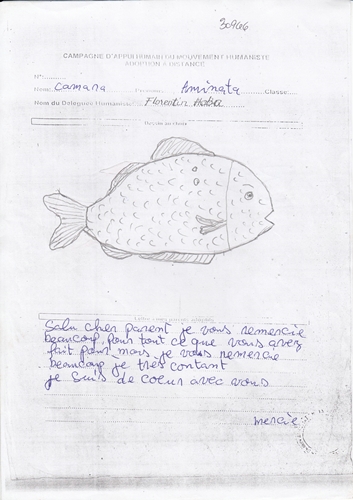 30966
CAMPAGNE D'APPUI HUMAIN DU MOUVEMENT HUMANISTE
ADOPTION A DISTANCE
N°:
Nom: Camara Prénoms: Aminata Classe
Nom du Délégué Humaniste: Florentin
Dessin au choix
Salu cher parent je vous remercie
beaucoup pour tout ce que vous avez
fait pour mois je vous remercie
beaucoup je très contant
je suis de coeur avec vous
mercie